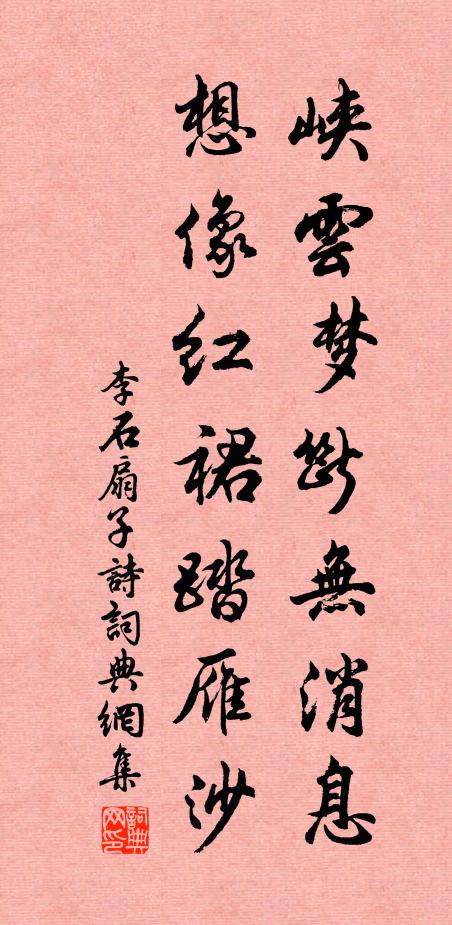 峽雲梦斷無消息
想像红裙踏雁沙
李石扇子詩詞典網集
詞典网印